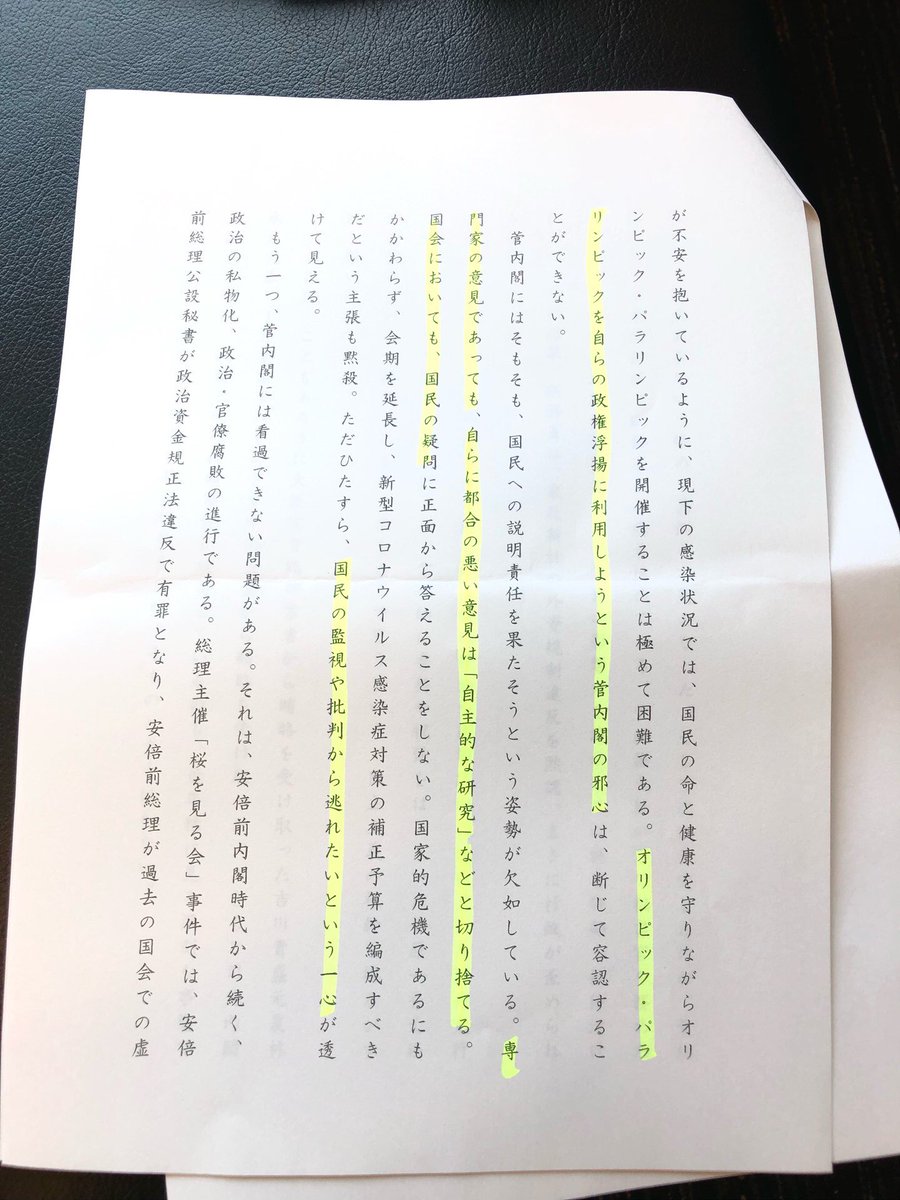 が不安を抱いているように、現下の感染状況では、国民の命と健康を守りながらオリ
ンピック・パラリンピックを開催することは極めて困難である。オリンピック・パラ
リンピックを自らの政権浮揚に利用しようという菅内閣の邪心は、断じて容認するこ
とができない。
菅内閣にはそもそも、国民への説明責任を果たそうという姿勢が欠如している。専
門家の意見であっても、自らに都合の悪い意見は「自主的な研究」などと切り捨てる。
国会においても、国民の疑問に正面から答えることをしない。国家的危機であるにも
かかわらず、会期を延長し、新型コロナウイルス感染症対策の補正予算を編成すべき
だという主張も黙殺。ただひたすら、国民の監視や批判から逃れたいという一心が透
けて見える。
もう一つ、菅内閣には看過できない問題がある。それは、安倍前内閣時代から続く、
政治の私物化、政治・官僚腐敗の進行である。総理主催「桜を見る会」事件では、安倍
前総理公設秘書が政治資金規正法違反で有罪となり、安倍前総理が過去の国会での虚